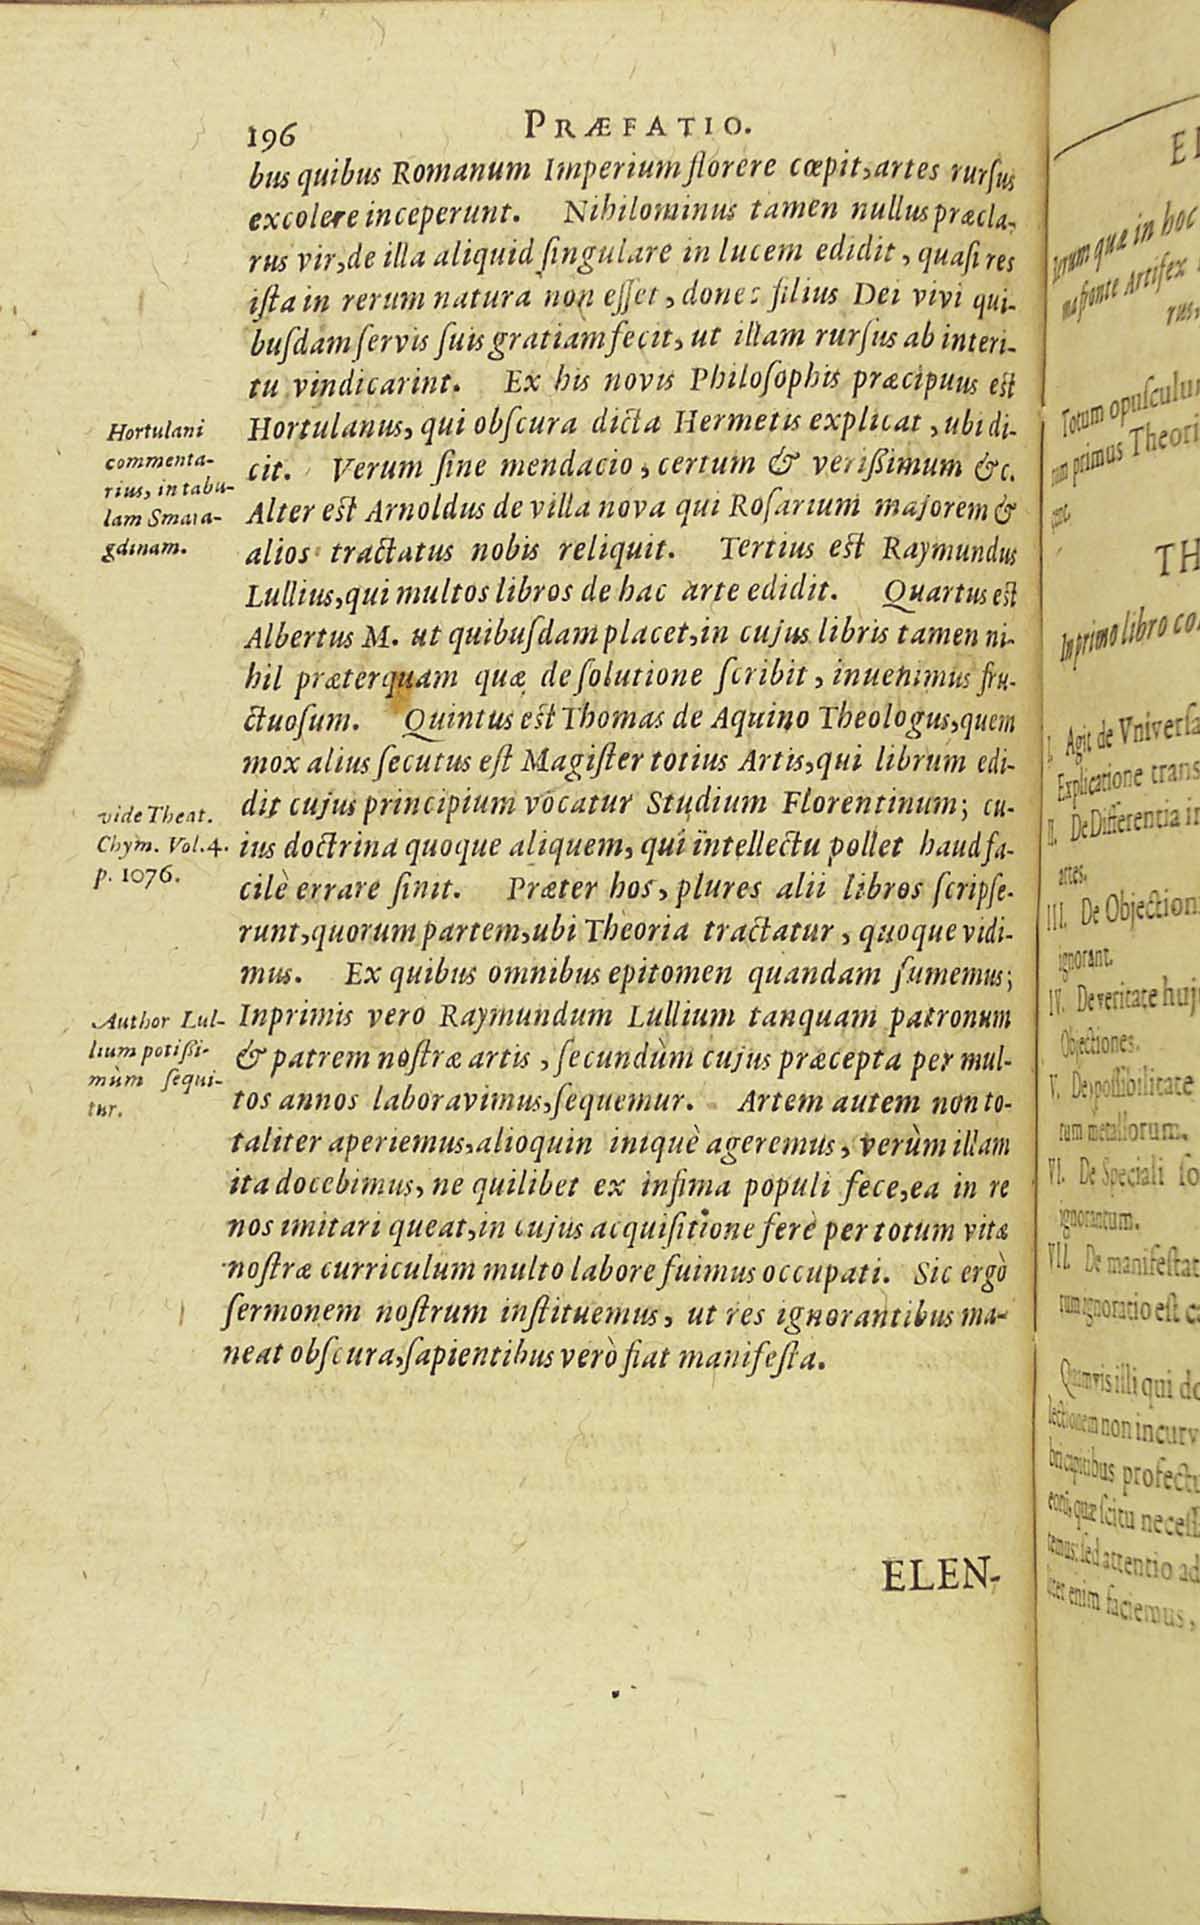 196
PRÆFATIO.
bus quibus Romanum Imperium florere cœpit, artes rurſus
excolere inceperunt. Nihilominus tamen nullus præcla-
rus vir, de illa aliquid ſingulare in lucem edidit, quaſi res
iſta in rerum natura non eſſet, donec filius Dei vivi qui-
buſdam ſervis ſuis gratiam fecit, ut illam rurſus ab interi-
tu vindicarint. Ex his novis Philoſophis præcipuus eſt
Hortulanus, qui obſcura dicta Hermetis explicat, ubi di-
cit. Verum ſine mendacio, certum & veriſsimum &c.
Alter eſt Arnoldus de villa nova qui Roſarium majorem &
alios tractatus nobis reliquit. Tertius eſt Raymundus
Lullius, qui multos libros de hac arte edidit. Quartus eſt
Albertus M. ut quibuſdam placet, in cujus libris tamen ni-
hil præterquam quæ de ſolutione ſcribit, inuenimus fru-
ctuoſum. Quintus eſt Thomas de Aquino Theologus, quem
mox alius ſecutus eſt Magiſter totius Artis, qui librum edi-
dit cujus principium vocatur Studium Florentinum; cu-
ius doctrina quoque aliquem, qui intellectu pollet haud fa-
cilè errare ſinit. Præter hos, plures alii libros ſcripſe-
runt, quorum partem, ubi Theoria tractatur, quoque vidi-
mus. Ex quibus omnibus epitomen quandam ſumemus;
Inprimis vero Raymundum Lullium tanquam patronum
& patrem noſtræ artis, ſecundùm cujus præcepta per mul-
tos annos laboravimus, ſequemur. Artem autem non to-
taliter aperiemus, alioquin iniquè ageremus, verùm illam
ita docebimus, ne quilibet ex infima populi fece, ea in re
nos imitari queat, in cujus acquiſitione ferè per totum vitæ
noſtræ curriculum multo labore fuimus occupati. Sic ergò
ſermonem noſtrum inſtituemus, ut res ignorantibus ma-
neat obſcura, ſapientibus verò fiat manifeſta.
ELEN-
Hortulani
commenta-
rius, in tabu-
lam Smara-
gdinam.
vide Theat.
Chym. Vol. 4.
p. 1076.
Author Lul-
lium potiſsi-
mùm ſequi-
tur.
quæ in hoc
fronte Artifex
rus,
Totum opuſculum
primus
TH
In primo libro
I. Agit de Vniverſa
Explicatione trans
II. De Differentia in
artes.
III. De Objection
ignorant.
IV. De veritate huj
Objectiones.
V. De poſſibilitate
tum metallorum.
VI. De Speciali ſo
ignorantum.
VII. De manifeſtat
rum ignoratio eſt
Quamvis illi qui do
lectionem non incurv
capitibus profectu
quæ ſcitu neceſſ
temus; ſed attentio ad
enim faciemus,